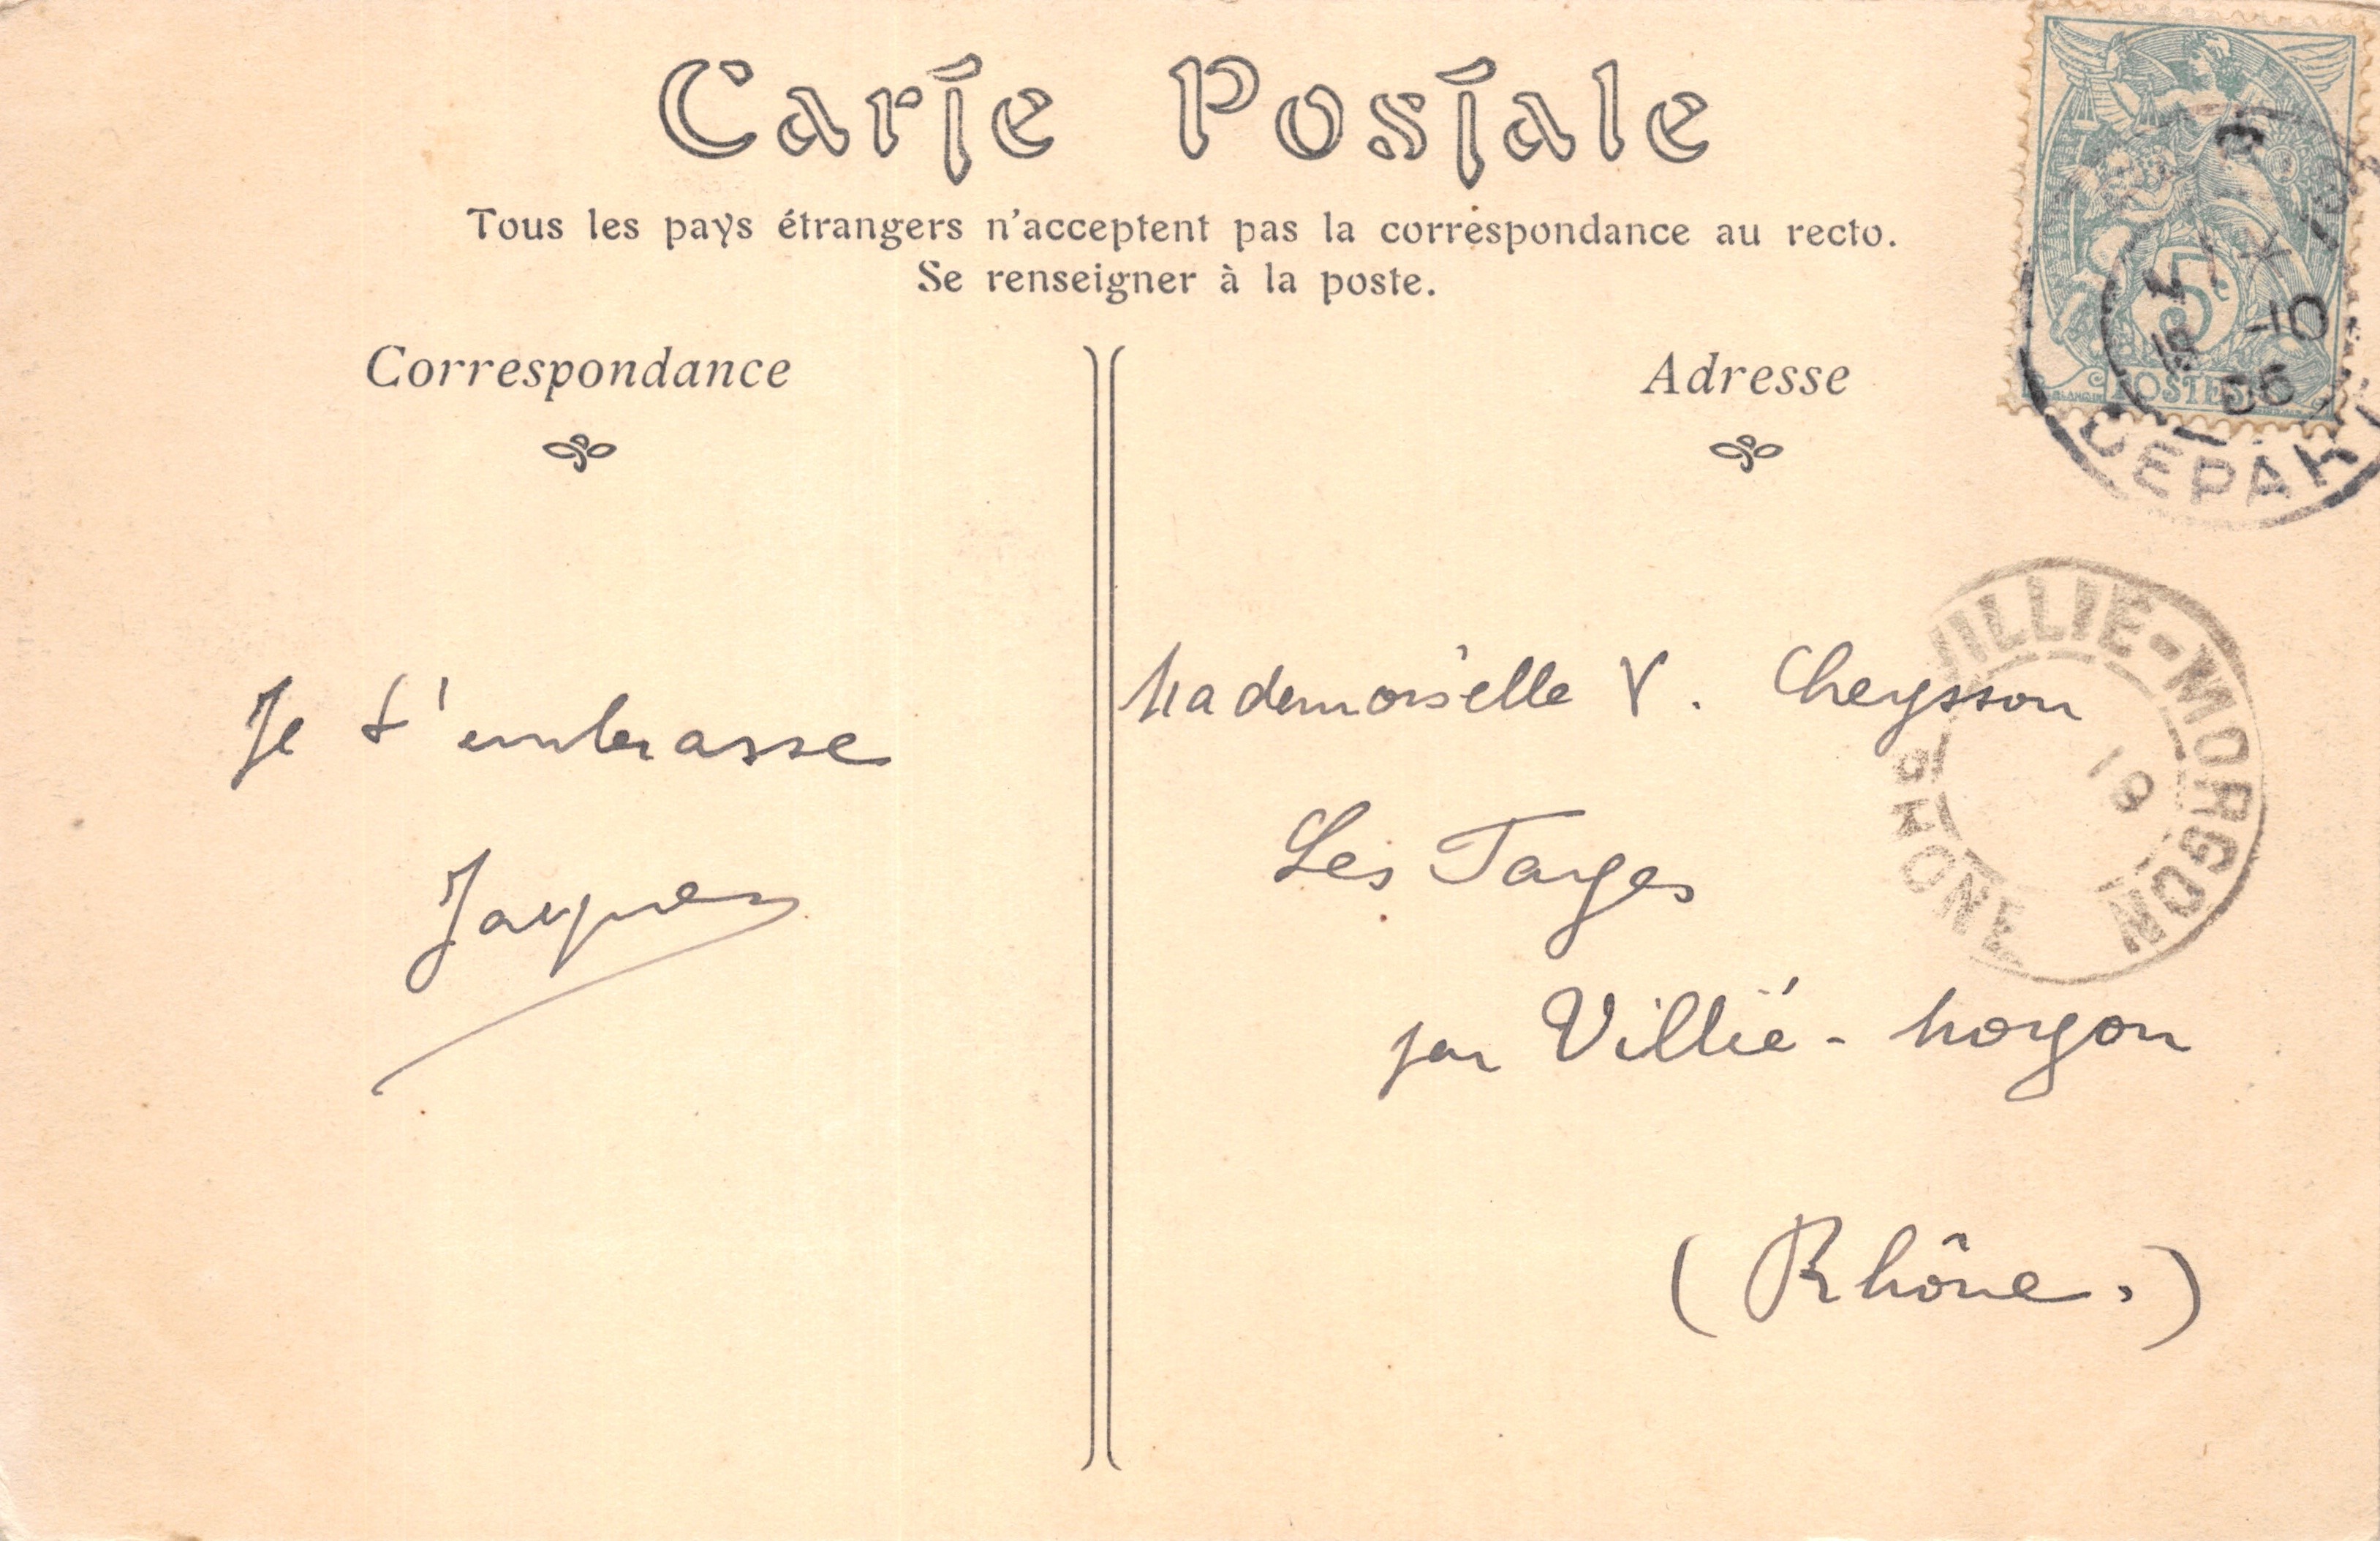 Carte Postale
Tous les pays étrangers n'acceptent pas la correspondance au recto.
Se renseigner à la poste.
Correspondance
Adresse
5c
POSTES
10
06
DEPART
VILLIE-MORGON
19
RHONE
Je t'embrasse
Jacques
Mademoiselle V. Cheysson
Les Targes
par Villié-Morgon
(Rhône.)